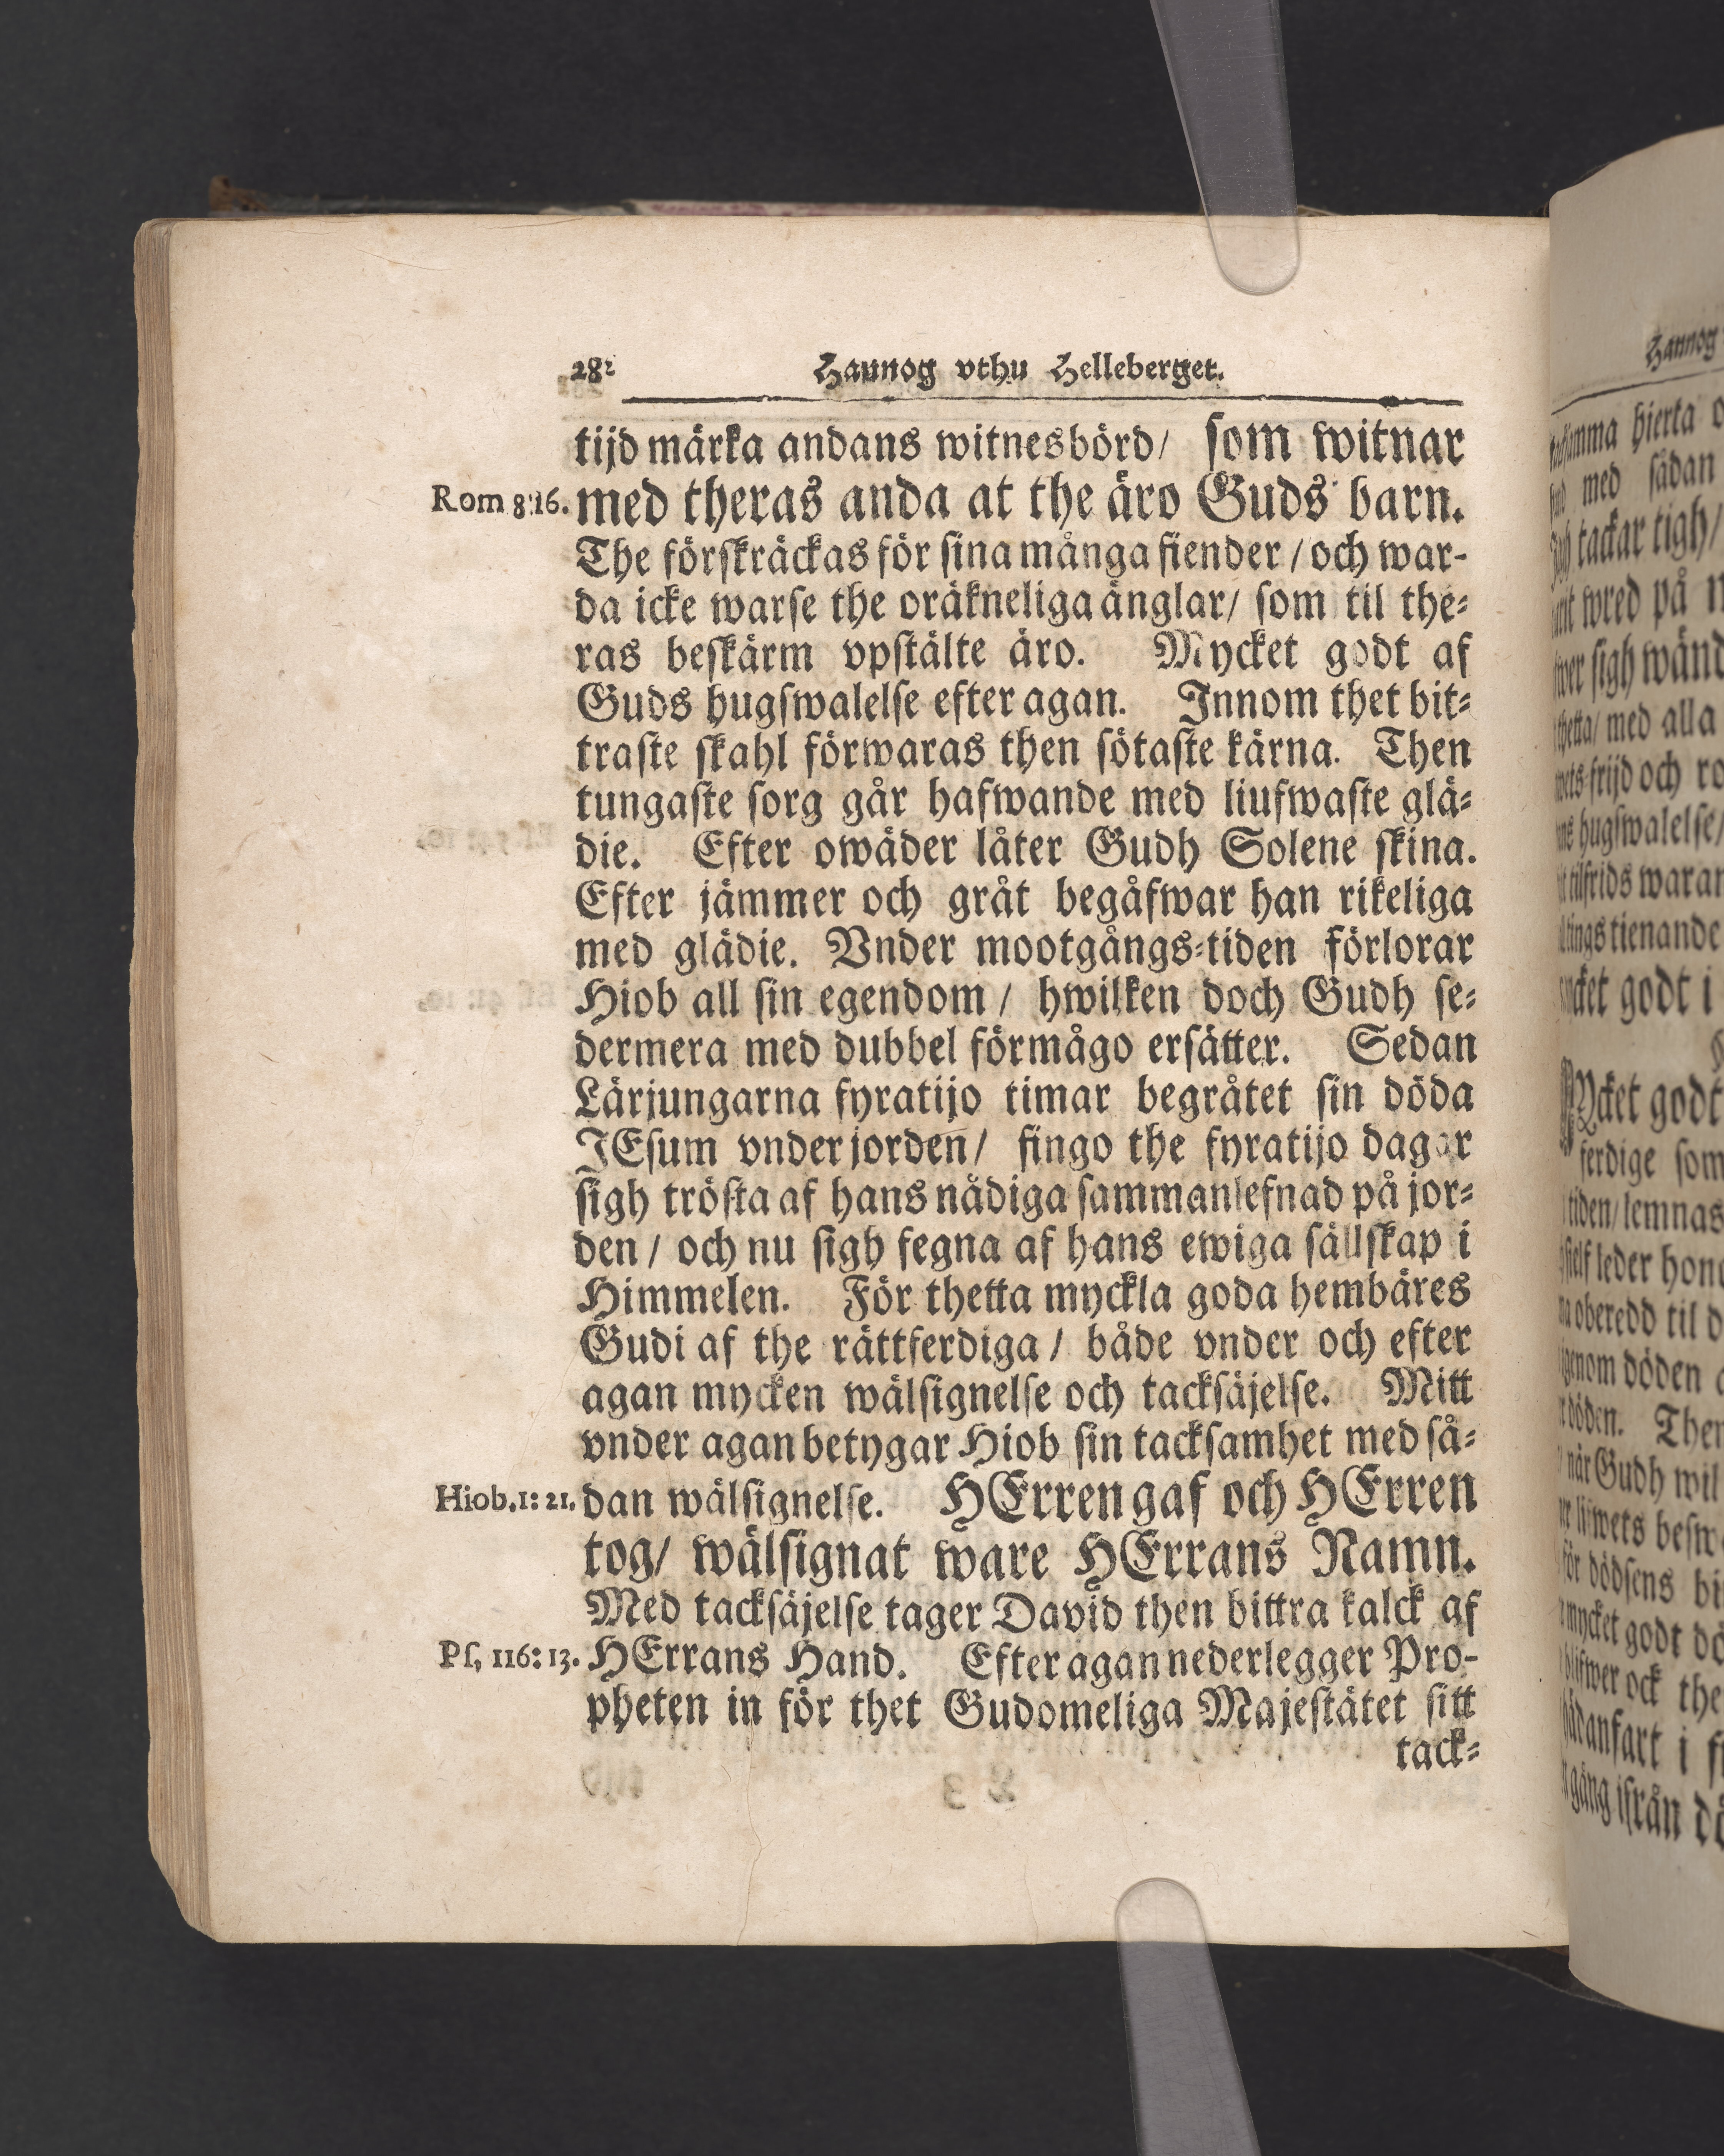 282 Haunog vthu Helleberget.
tijd märka andans witnesbörd/ som witnar
Rom 8:16. med theras anda at the äro Guds barn.
The förskräckas för sina många fiender / och war-
da icke warse the oräkneliga änglar/ som til the-
ras beskärm vpstälte äro. Mycket godt af
Guds hugswalelse efter agan. Innom thet bit-
traste skahl förwaras then sötaste kärna. Then
tungaste sorg går hafwande med liufwaste glä-
die. Efter owäder låter Gudh Solene skina.
Efter jämmer och gråt begåfwar han rikeliga
med glädie. Vnder mootgångs-tiden förlorar
Hiob all sin egendom / hwilken doch Gudh se-
dermera med dubbel förmågo ersätter. Sedan
Lärjungarna fyratijo timar begråtet sin döda
JEsum vnder jorden/ fingo the fyratijo dagar
sigh trösta af hans nådiga sammanlefnad på jor-
den / och nu sigh fegna af hans ewiga sällskap i
Himmelen. För thetta myckla goda hembäres
Gudi af the rättferdiga / både vnder och efter
agan mycken wälsignelse och tacksäjelse. Mitt
vnder agan betygar Hiob sin tacksamhet med så-
Hiob. 1: 21. dan wälsignelse. HErren gaf och HErren
tog/ wälsignat ware HErrans Namn.
Med tacksäjelse tager David then bittra kalck af
Ps, 116: 13. HErrans Hand. Efter agan nederlegger Pro-
pheten in för thet Gudomeliga Majestätet sitt
tack-